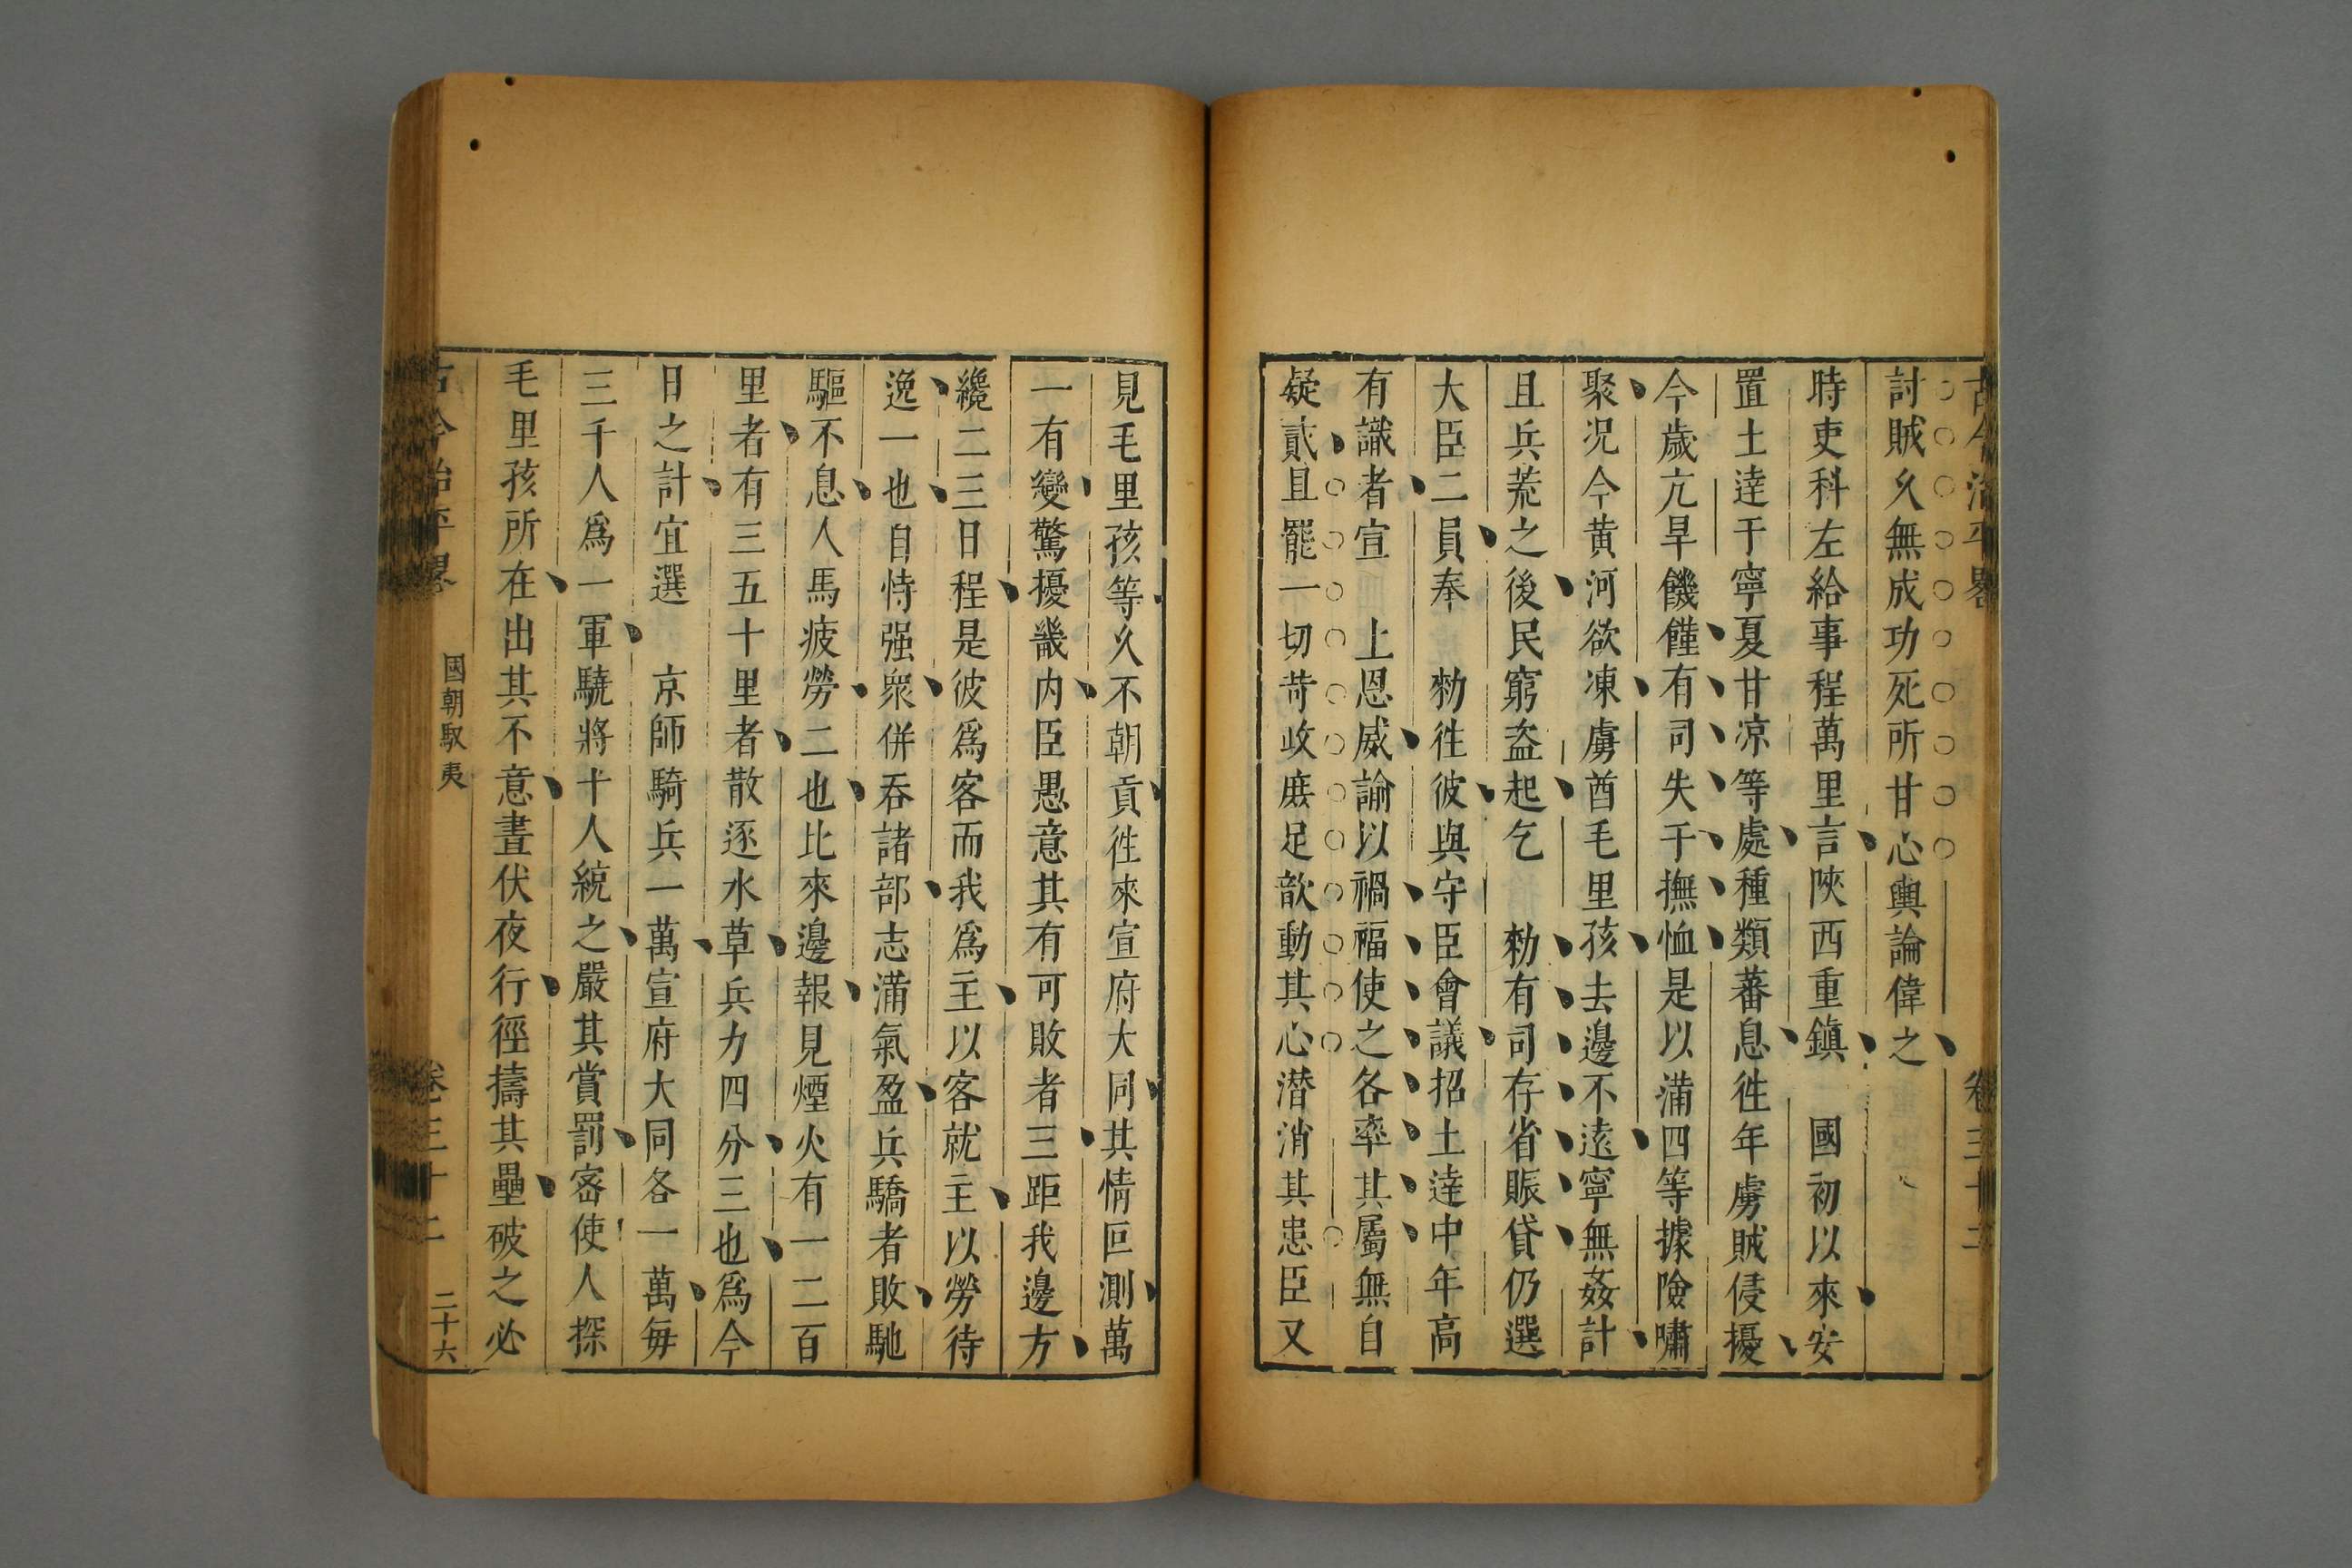 古今治平畧
卷三十二
討賊久無成功死所甘心輿論偉之
時吏科左給事程萬里言陝西重鎮　國初以來安
置土逹于寧夏甘凉等處種類蕃息徃年虜賊侵擾
今歲亢旱饑饉有司失于撫恤是以蒲四等據險嘯
聚况今黄河欲凍虜酋毛里孩去邊不遠寧無姦計
且兵荒之後民窮盗起乞　勑有司存省賑貸仍選
大臣二員奉　勑徃彼與守臣會議招土逹中年高
有識者宣　上恩威諭以禍福使之各率其屬無自
疑貳且罷一切苛政庻足歆動其心潜消其患臣又
見毛里孩等久不朝貢徃來宣府大同其情叵測萬
一有變驚擾畿内臣愚意其有可敗者三距我邊方
纔二三日程是彼爲客而我爲主以客就主以勞待
逸一也自恃强衆併吞諸部志蒲氣盈兵驕者敗馳
驅不息人馬疲勞二也比來邊報見煙火有一二百
里者有三五十里者散逐水草兵力四分三也爲今
日之計宜選　京師騎兵一萬宣府大同各一萬毎
三千人爲一軍驍將十人綂之嚴其賞罰宻使人探
毛里孩所在出其不意晝伏夜行徑擣其壘破之必
古今治平畧
國朝馭夷
卷三十二
二十六